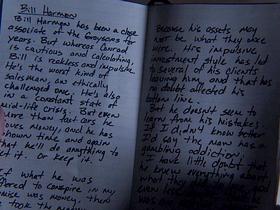 Bill Harmen
Bill Harmon has been a close
associate of the Graysons for
years. But whereas Conrad
is cautious and calculating,
Bill is reckless and impulsive.
He's the worst kind of
salesman, an ethically
challenged one. He's also
in a constant state of
mid-life crisis. But even
more than fast cars he
loves money, and he has
shown time and again
that he'll do anything to
get it. Or keep it.
If what he was
offered to conspire in my
was money, then
he took the money
Because his assets may
not be what they once
were. His impulsive
investment style has led
to several of his clients
leaving him, and it has
no doubt affected his
bottom line.
But he doesn't seem to
learn from his mistakes.
If I didn't know better
I'd say the man has a
gambling addiction.
I have little doubt that
he knew everything about